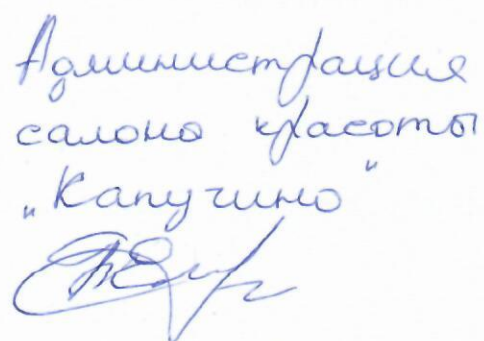 Администрация
салона красоты
„Капучино"